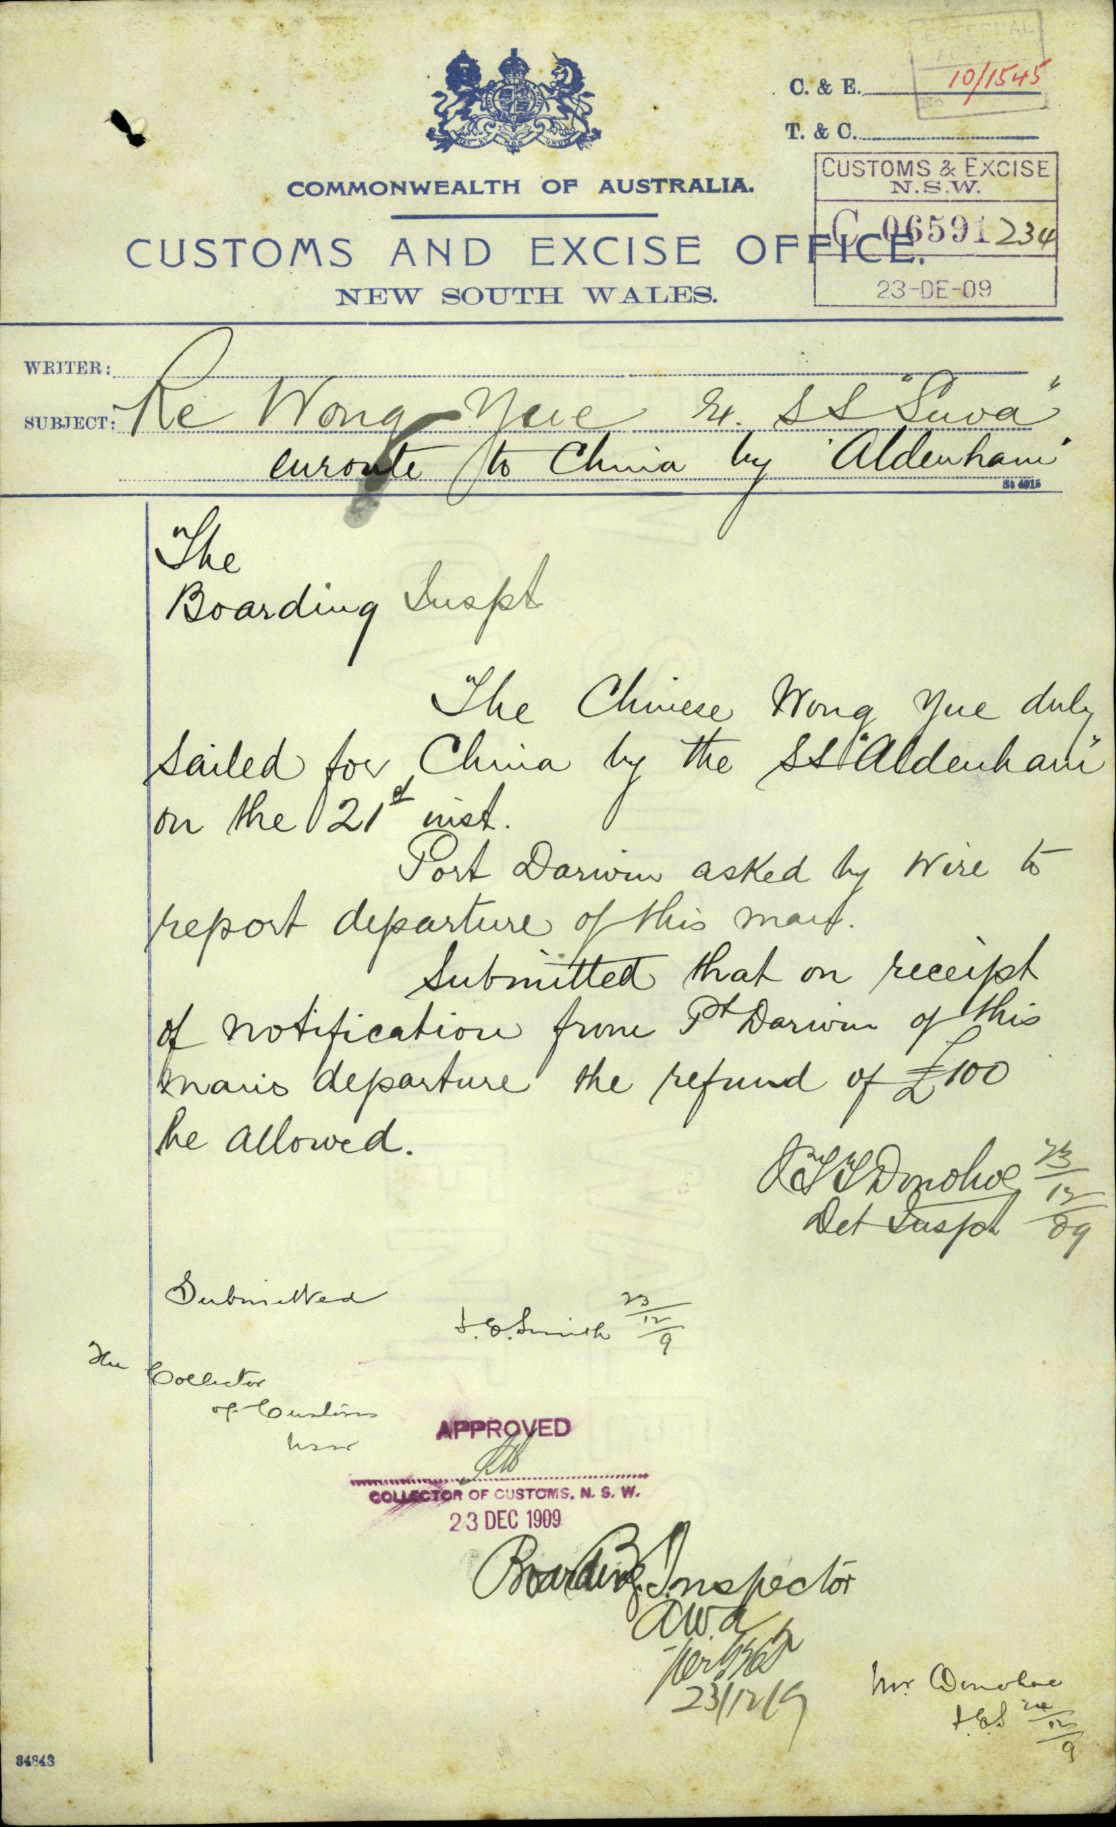 C. & E. 10/1545
T. & C.
COMMONWEALTH OF AUSTRALIA.
CUSTOMS & EXCISE
N.S.W.
C 06591 234
23-DE-09
CUSTOMS AND EXCISE OFFICE.
NEW SOUTH WALES.
WRITER:
SUBJECT: Re Wong Yue ex. SS "Suva"
enroute to China by "Aldenham"
The
Boarding Inspt
The Chinese Wong Yue duly
sailed for China by the SS "Aldenham"
on the 21st inst.
Port Darwin asked by wire to
report departure of this man.
Submitted that on receipt
of notification from Pt Darwin of this
mans departure the refund of £100
be allowed.
JTT Donohoe 23/12/09
Det Inspt
Submitted
J.E. Smith 23/12/9
The Collector
of Customs
NSW
APPROVED
COLLECTOR OF CUSTOMS, N. S. W.
23 DEC 1909
Boarding Inspector
23/12/9
Mr. Donohoe
24/12/9
84843